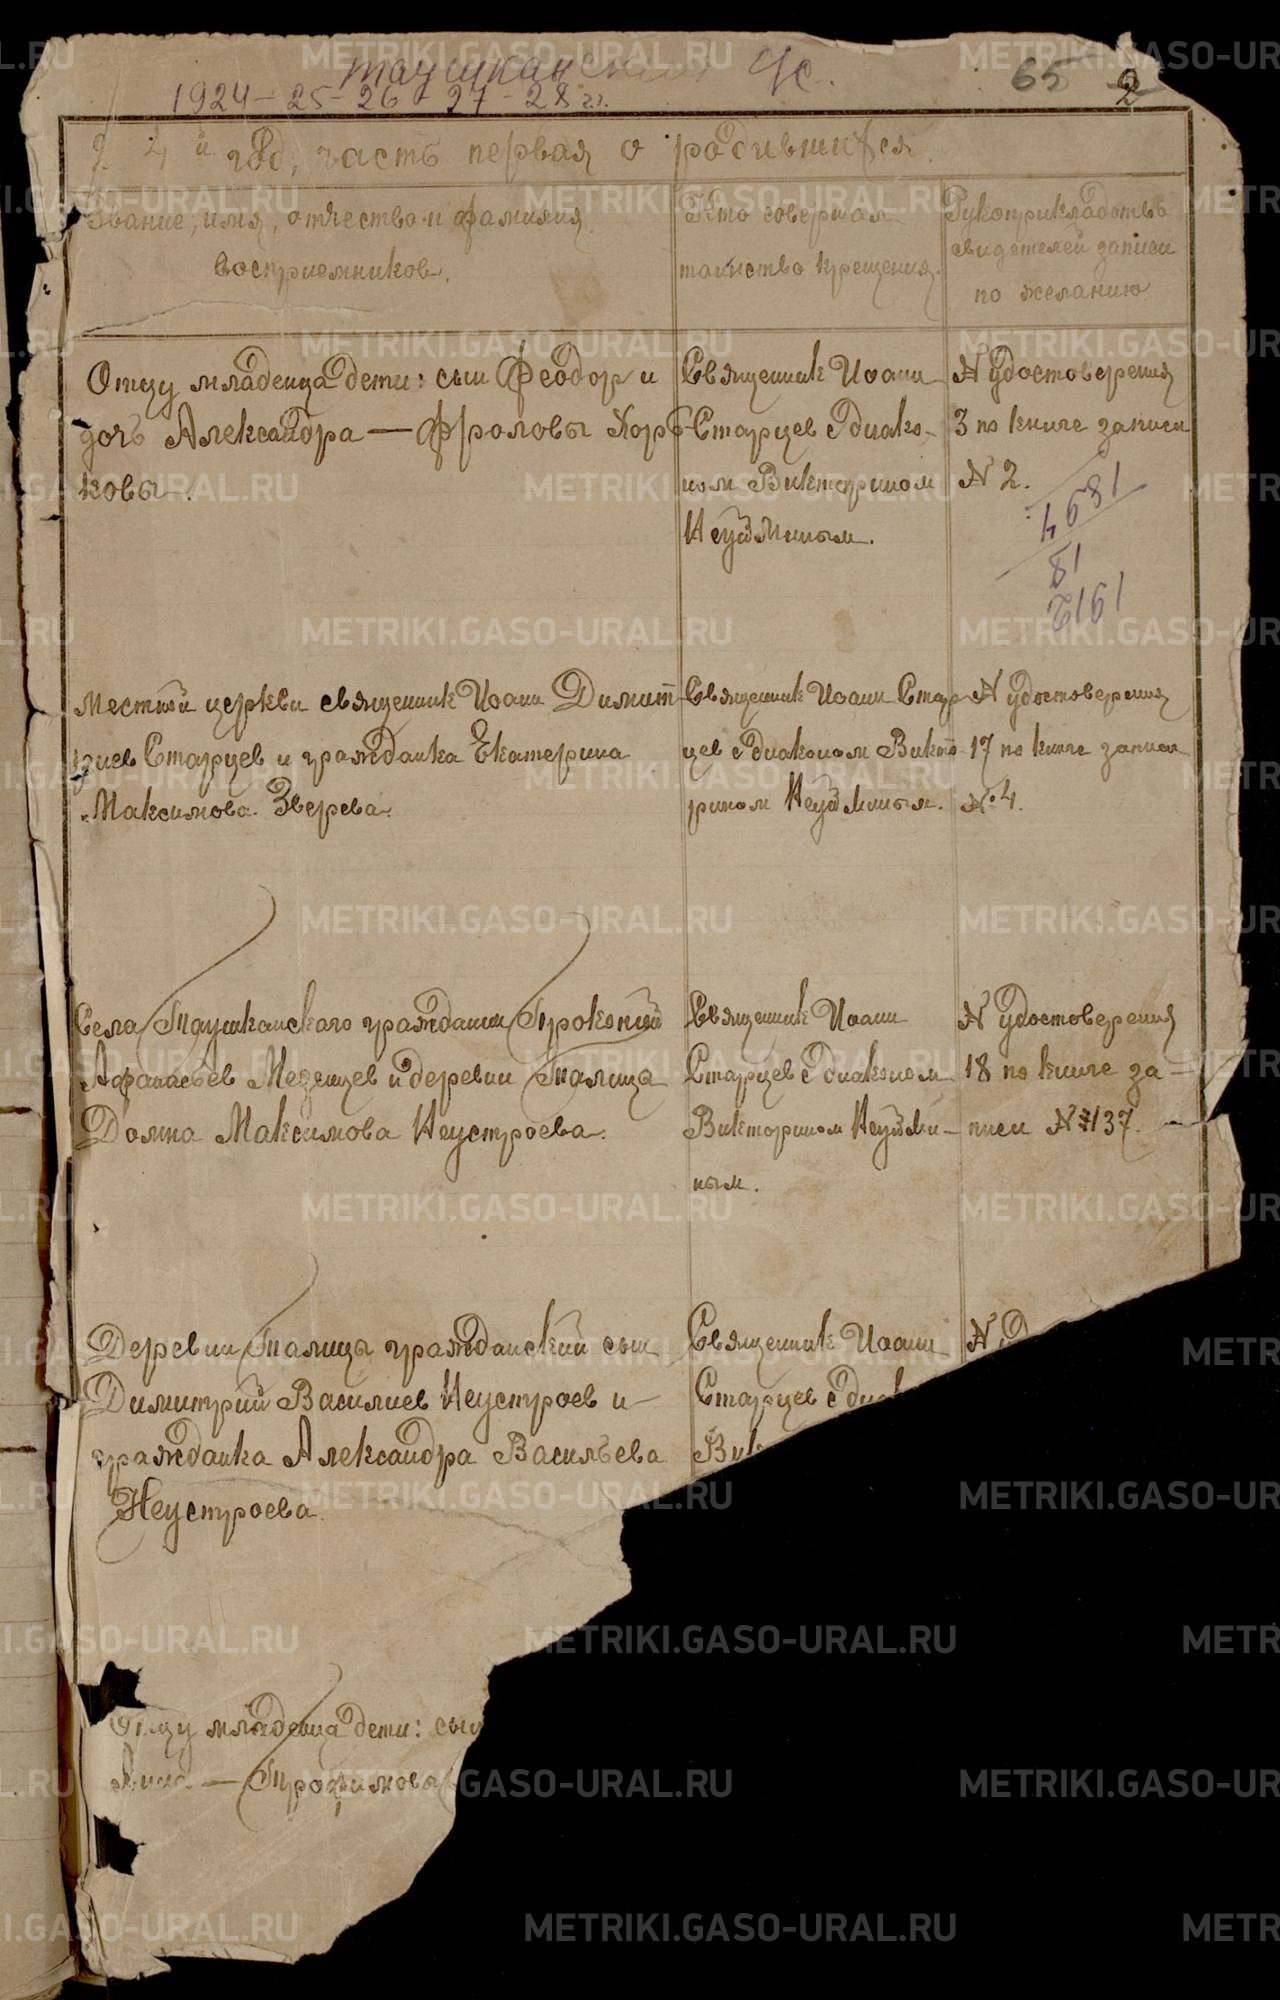 Таушканский с/с.
65 2
1924-25-26-27-28 гг.
4й год, часть первая о родившихся.
Звание, имя, отчество и фамилия
восприемников.
Кто совершал
таинство крещения.
Рукоприкладство
свидетелей записи
по желанию
Отцу младенца дети: сын Феодор и
дочь Александра — Фроловы
ковы.
Священник Иоанн
Старцев с диако-
ном Викторином
Неуйминым.
N удостоверения
3 по книге записи
N 2.
1894
18
1912
Местной церкви священник Иоанн Димит
риев Старцев и гражданка Екатерина
Максимова Зверева.
Священник Иоанн Стар
цев с диаконом Викто
рином Неуйминым.
N удостоверения
17 по книге записи
№ 4.
Села Таушканскаго гражданин Прокопий
Афанасьев Мезенцев и деревни Талица
Домна Максимова Неустроева.
Священник Иоанн
Старцев с диаконом
Викторином Неуйми-
ным.
N удостоверения
18 по книге за-
писи N 137.
Деревни Талицы гражданский сын
Димитрий Василиев Неустроев и
гражданка Александра Васильева
Неустроева.
Священник Иоанн
Старцев с диак
Вик
N уд
Отцу младенца дети: сын
Анна — Трофимовы
METRIKI.GASO-URAL.RU